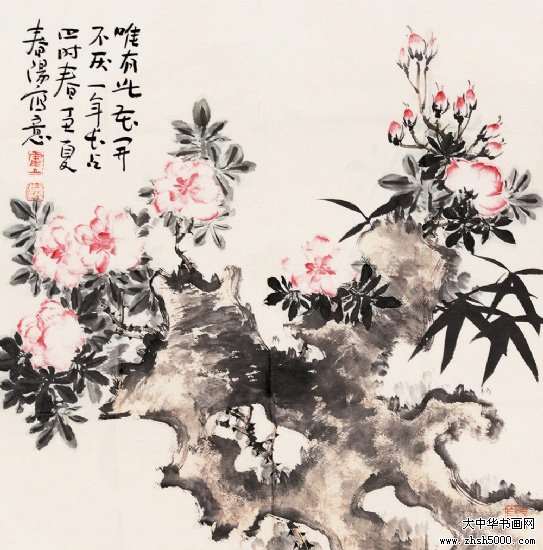 唯有此花开
不厌一年长占
四时春丑夏
春陽写意
大中华书画网
www.zhsh5000.com